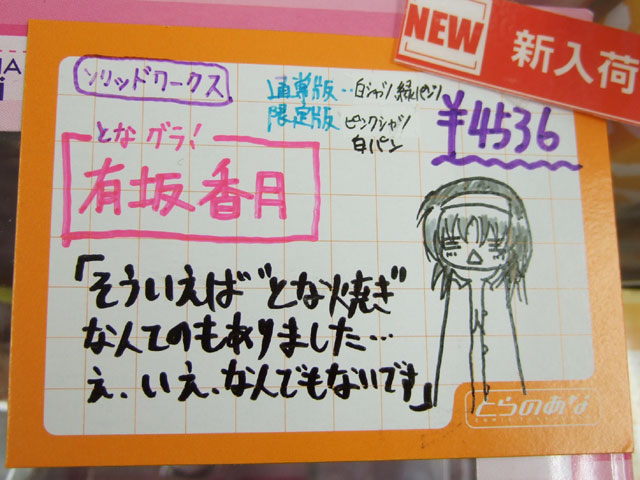 NEW 新入荷
ソリッドワークス
通常版‥白シャツ 緑パンツ
限定版 ピンクシャツ
白パン
¥4536
となグラ!
有坂香月
「そういえば"とな焼き"
なんてのもありました…
え、いえ、なんでもないです」
とらのあな